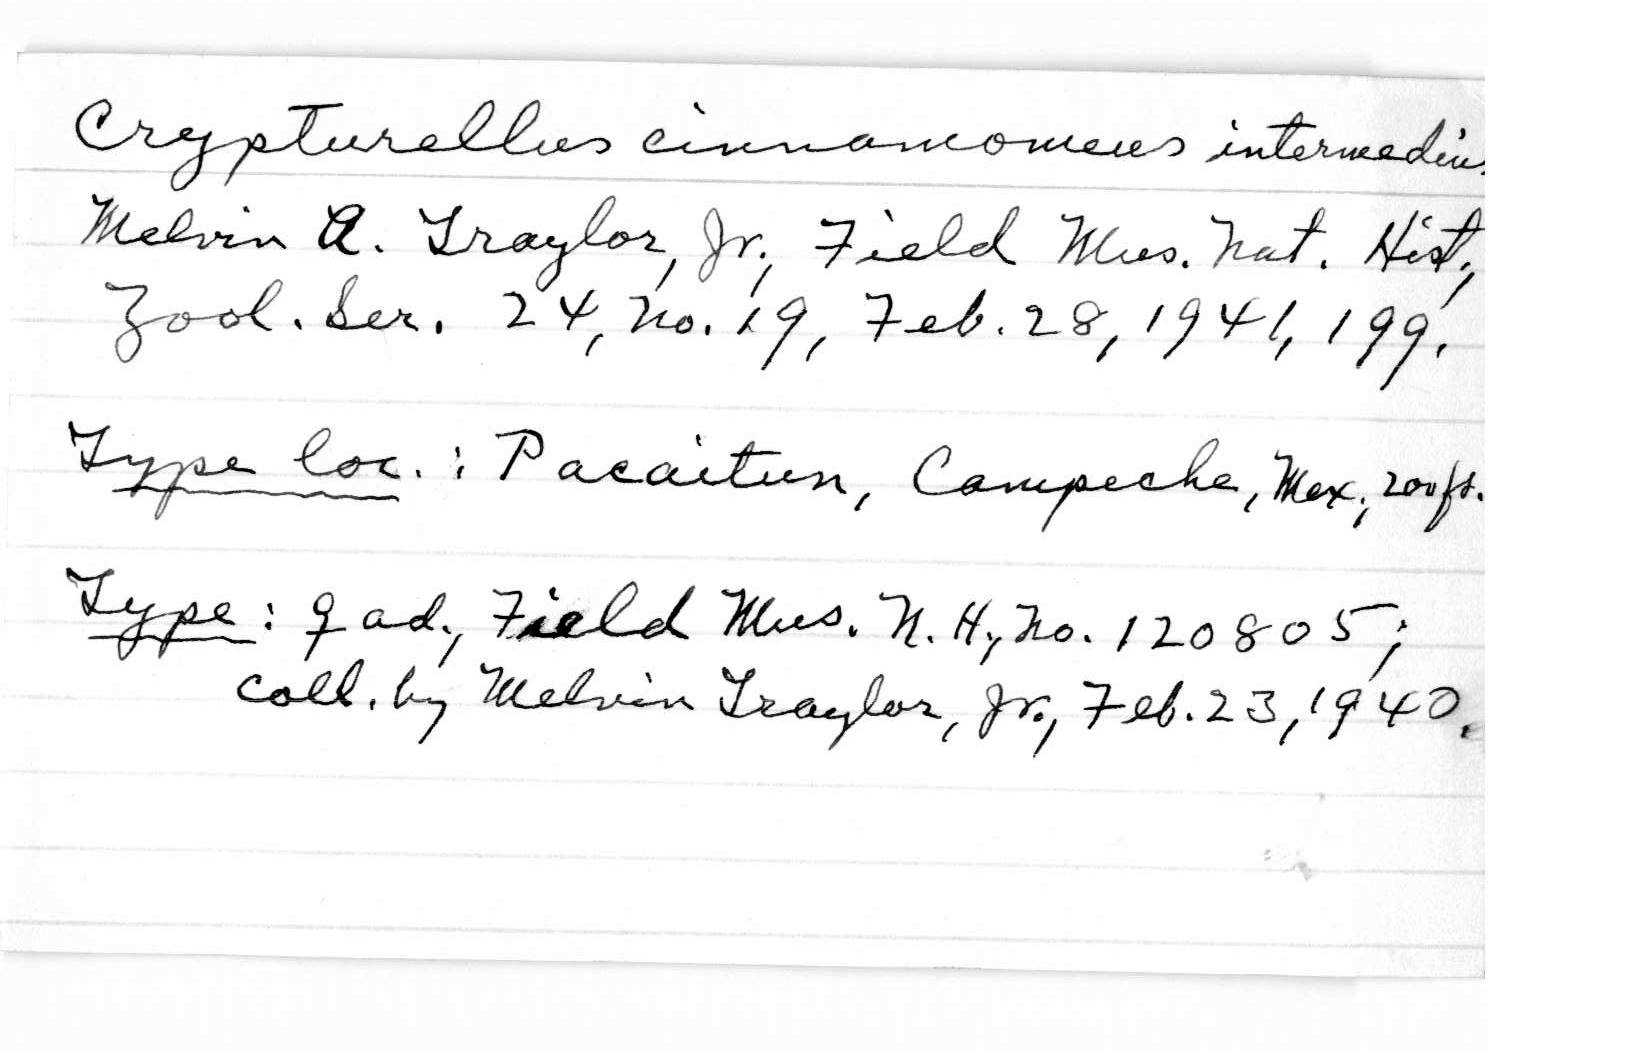 Crypturellus cinnamomeus intermedius
Melvin A. Traylor, Jr., Field Mus. Nat. Hist.,
Zool. Ser. 24, No. 19, Feb. 28, 1941, 199.
Type loc.: Pacaitun, Campeche, Mex., 200 ft.
Type: ♀ ad., Field Mus. N. H., No. 120805;
coll. by Melvin Traylor, Jr., Feb. 23, 1940.